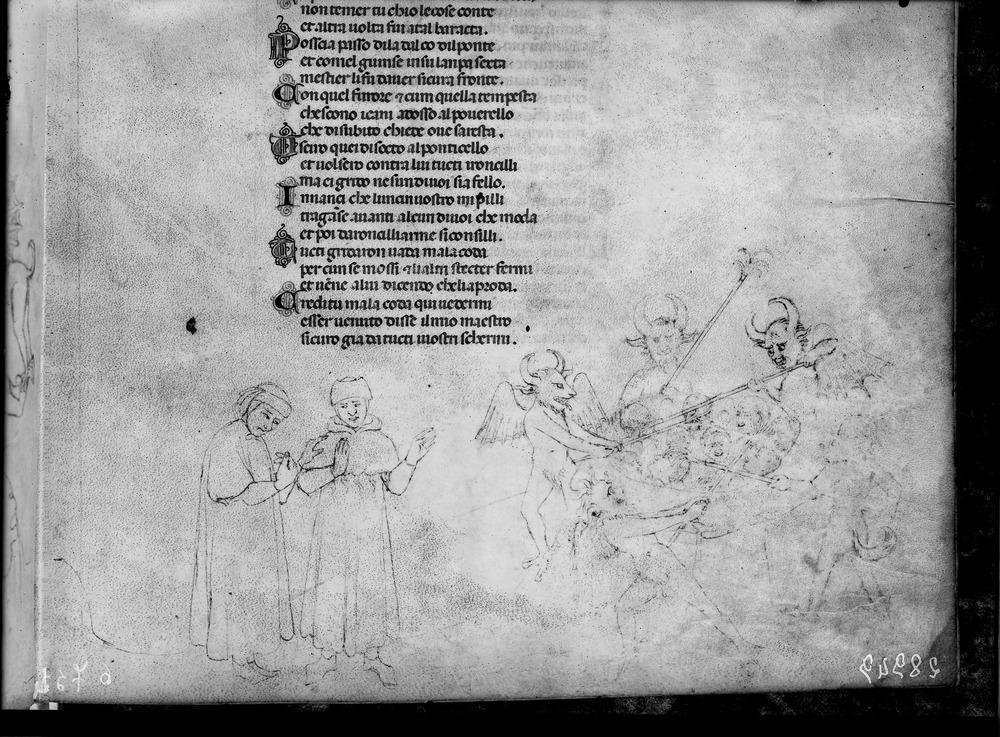 non temer tu chio le cose conte
et altra uolta fui a tal baracta.
Poscia passo di la dal co dil ponte
et comel giunse in su lanpa sexta
mestier li fu dauer sicura fronte.
Con quel furore et cum quella tempesta
che scono i cani adosso al pouerello
che di subito chiede oue saresta.
sciro quei di socto al ponticello
et uolsero contra lui tucti roncilli
ma ei grido nesun di uoi sia fello.
Innanci che luncin uostro mi pilli
tragase auanti alcun di uoi che moda
et poi daroncilliarme si consilli.
Tucti gridaron uada malacoda
per cun se mossi et li altri stecter fermi
et uene a lui dicendo che li aproda.
Credi tu mala coda qui uedermi
esser uenuto disse il mio maestro
sicuro gia da tucti uostri schermi.
6
28949